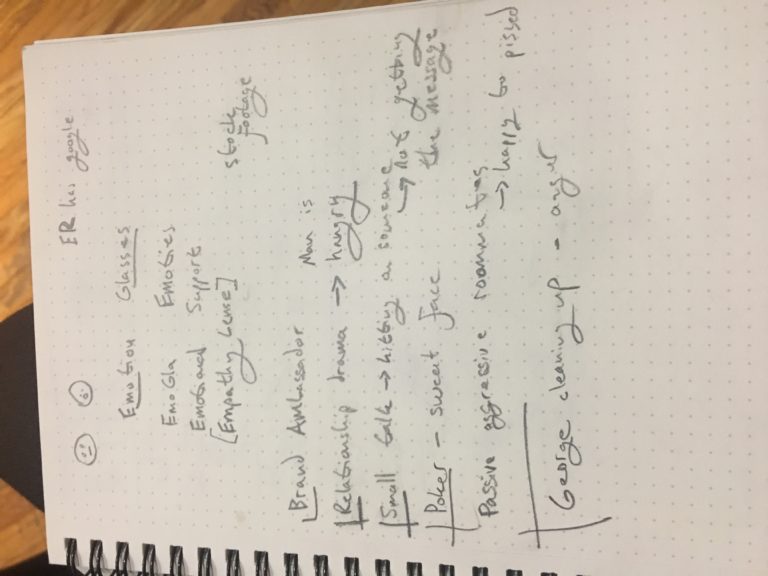 ER has google
Emotion Glasses
EmoGla Emoties
Emotional Support
[Empathy Lense]
stock
footage
Brand Ambassador
Man is
Relationship drama → hangry
Small talk → hitting on someone
→ not getting
the message
Poker - sweat face
Passive aggressive roommates
→ happy to pissed
George cleaning up - anger